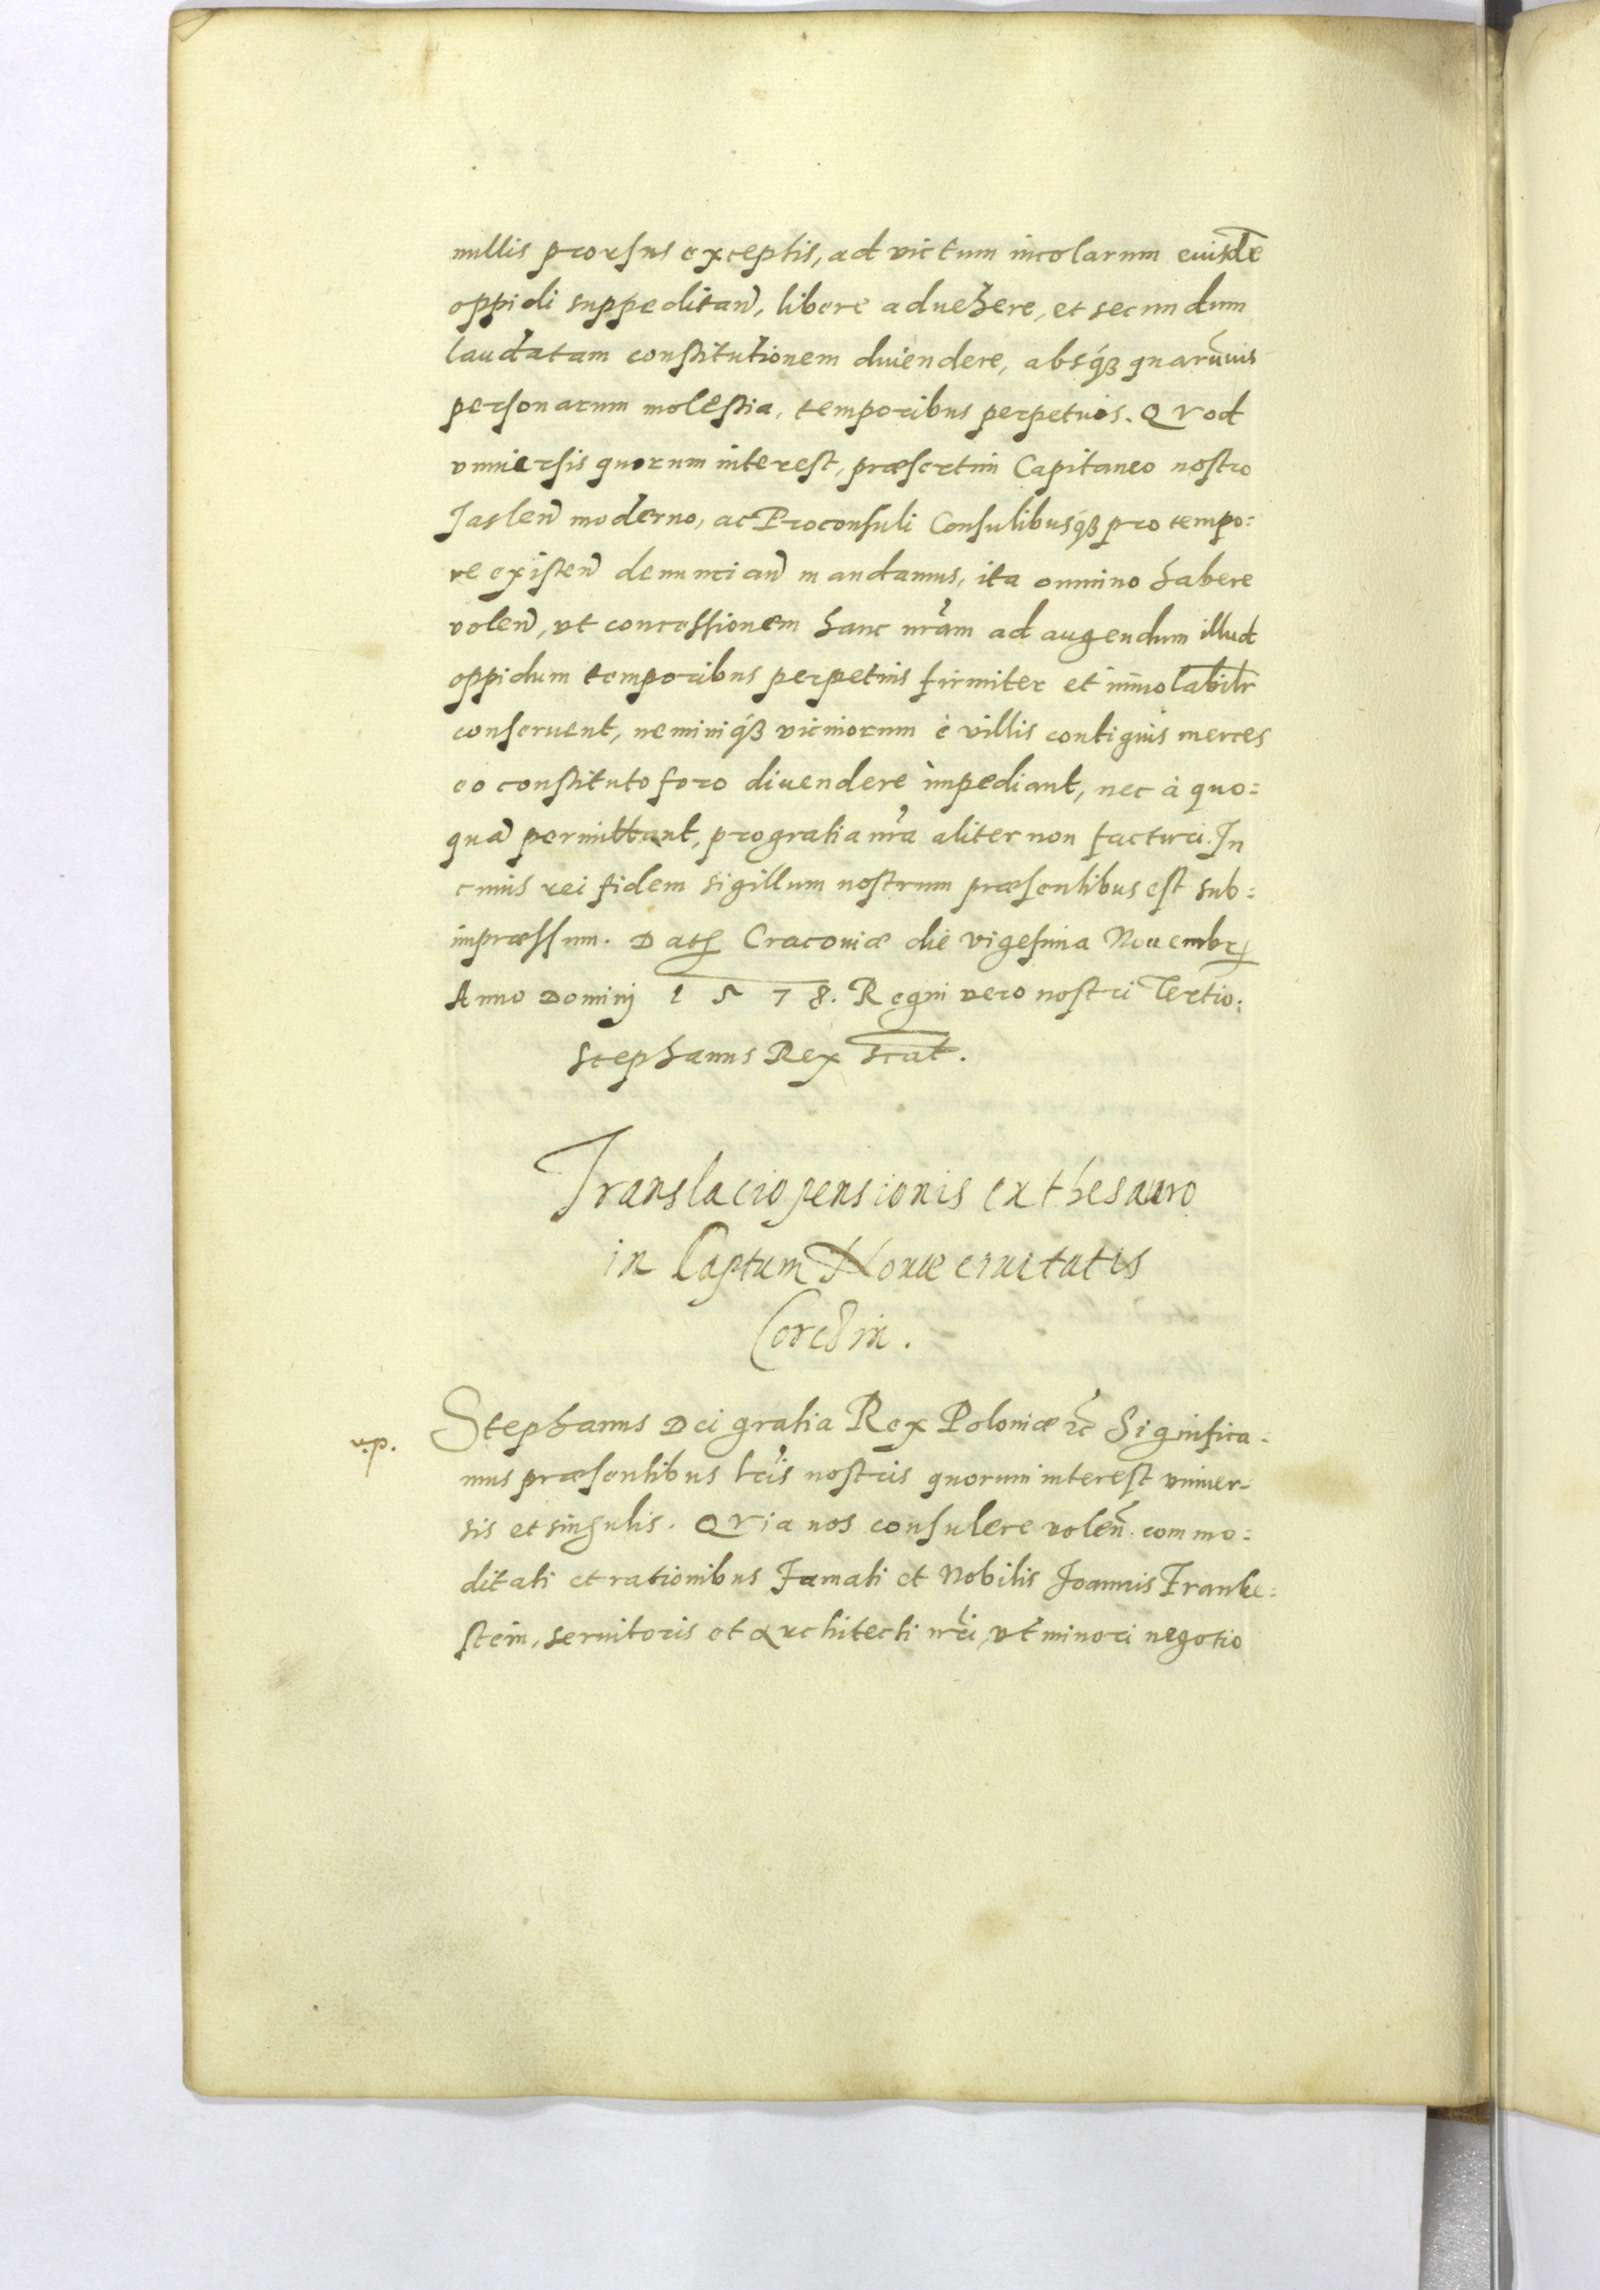 nullis prorsus exceptis, ad victum incolarum eiusdē
oppidi suppeditan̄, libere aduehere, et secundum
laudatam constitutionem diuendere, absq́ꝫ quarūuis
personarum molestia, temporibus perpetuis. QVod
vniuersis quorum interest, præsertim Capitaneo nostro
Jaslen̄ moderno, ac Proconsuli Consulibusq́ꝫ pro tempo:
re existen̄ denuncian̄ mandamus, ita omnino habere
volen̄, vt concessionem hanc nr̄am ad augendum illud
oppidum temporibus perpetuis firmiter et inuiolabilr̄
conseruent, neminiq́ꝫ vicinorum è villis contiguis merces
eo constituto foro diuendere impediant, nec à quo:
quā permittant, pro gratia nr̄a aliter non facturi. In
cuius rei fidem sigillum nostrum præsentibus est sub:
impræssum. Datꝭ Cracouiæ die vigesima Nouembrꝭ
Anno Dominj 1578. Regni vero nostri Tertio:
Stephanus Rex scut̄.
Translacio pensionis ex thesauro
in Captum Nouæ ciuitatis
Corcȣin.
v.p.
Stephanus Dei gratia Rex Poloniæ ꝛc̄ Significa:
mus præsentibus lr̄is nostris quorum interest vniuer-
sis et singulis. QVia nos consulere volen̄ commo:
ditati et rationibus Famati et Nobilis Joannis Franke:
stein, seruitoris et Architecti nr̄i, vt minori negotio